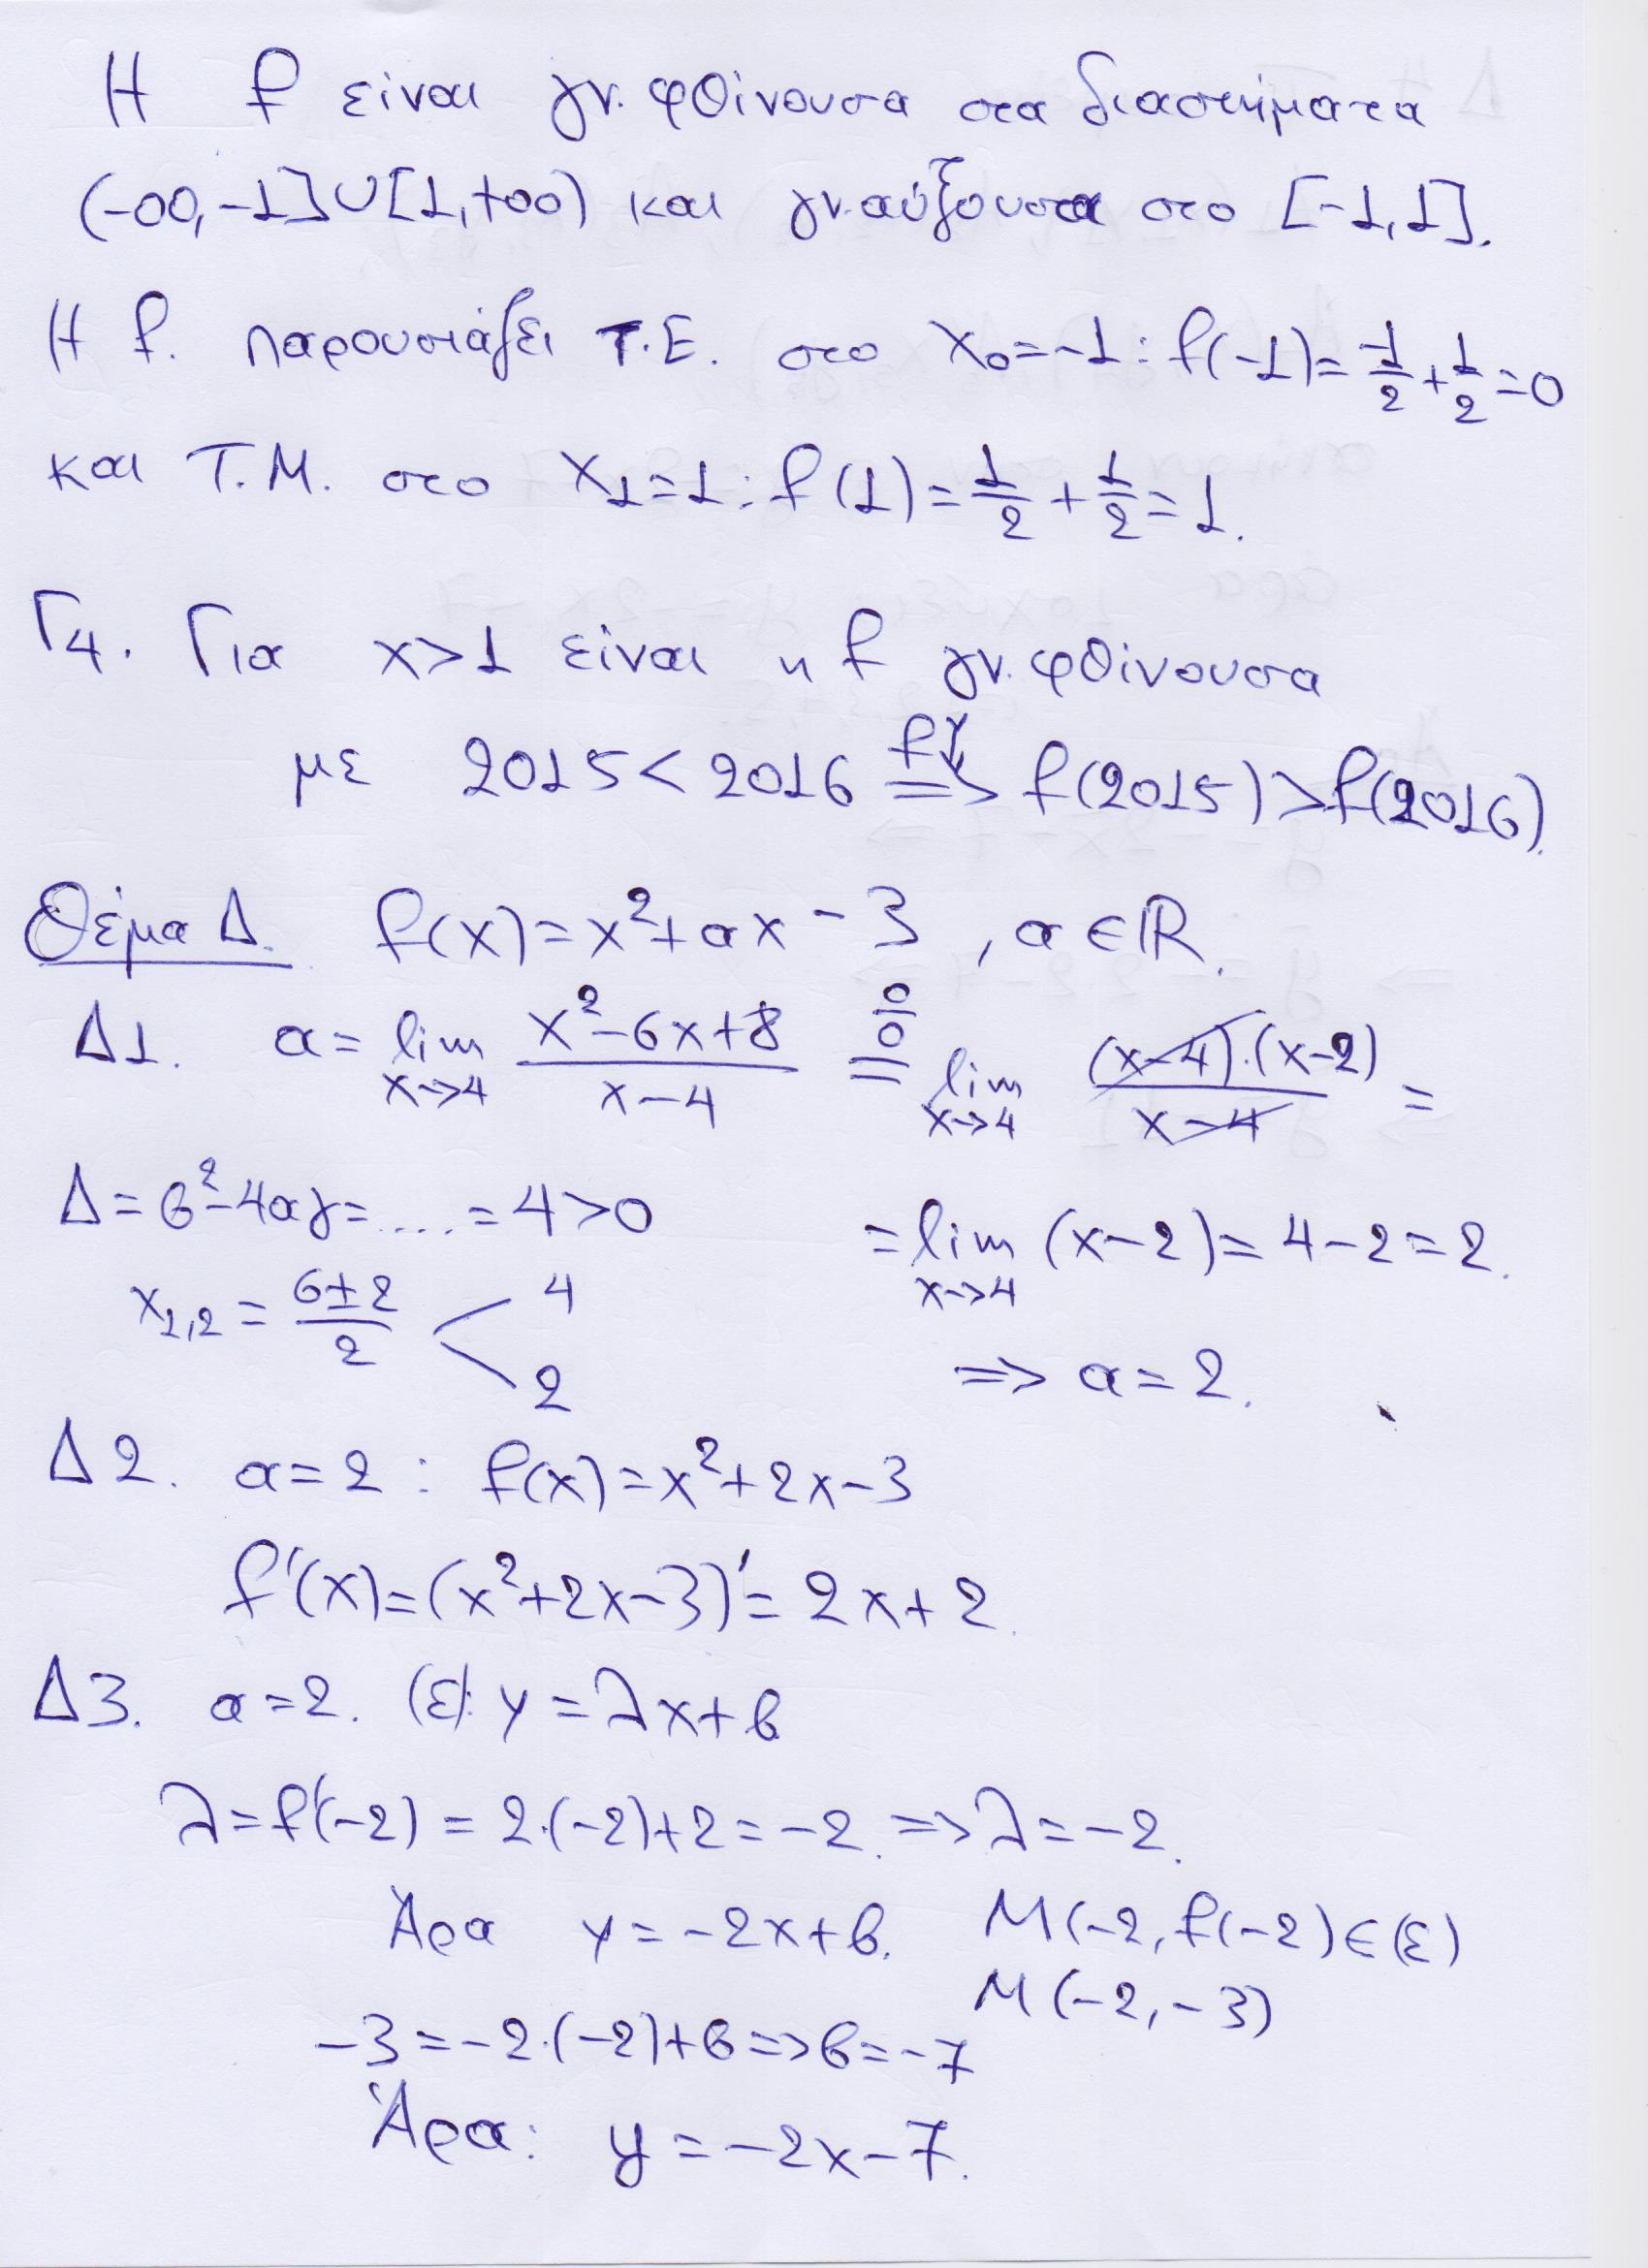 Η f είναι γν. φθίνουσα στα διαστήματα
(-∞,-1]∪[1,+∞) και γν.αύξουσα στο [-1,1].
Η f. παρουσιάζει Τ.Ε. στο x₀=-1: f(-1)=-1/2+1/2=0
και Τ.Μ. στο x₁=1: f(1)=1/2+1/2=1.
Γ4. Για x>1 είναι η f γν.φθίνουσα
με 2015<2016 =f↘=> f(2015)>f(2016).
Θέμα Δ. f(x)=x²+αx-3, α∈ℝ.
Δ1. α= lim x→4 (x²-6x+8)/(x-4) =0/0= lim x→4 (x-4)·(x-2)/(x-4) =
Δ=β²-4αγ=....=4>0 =lim x→4 (x-2)=4-2=2.
x₁,₂=(6±2)/2 < 4 2
=> α=2.
Δ2. α=2: f(x)=x²+2x-3
f'(x)=(x²+2x-3)'=2x+2.
Δ3. α=2. (ε): y=λx+β
λ=f'(-2)=2·(-2)+2=-2. =>λ=-2.
Άρα y=-2x+β. Μ(-2,f(-2)∈(ε)
Μ(-2,-3)
-3=-2·(-2)+β=>β=-7
Άρα: y=-2x-7.